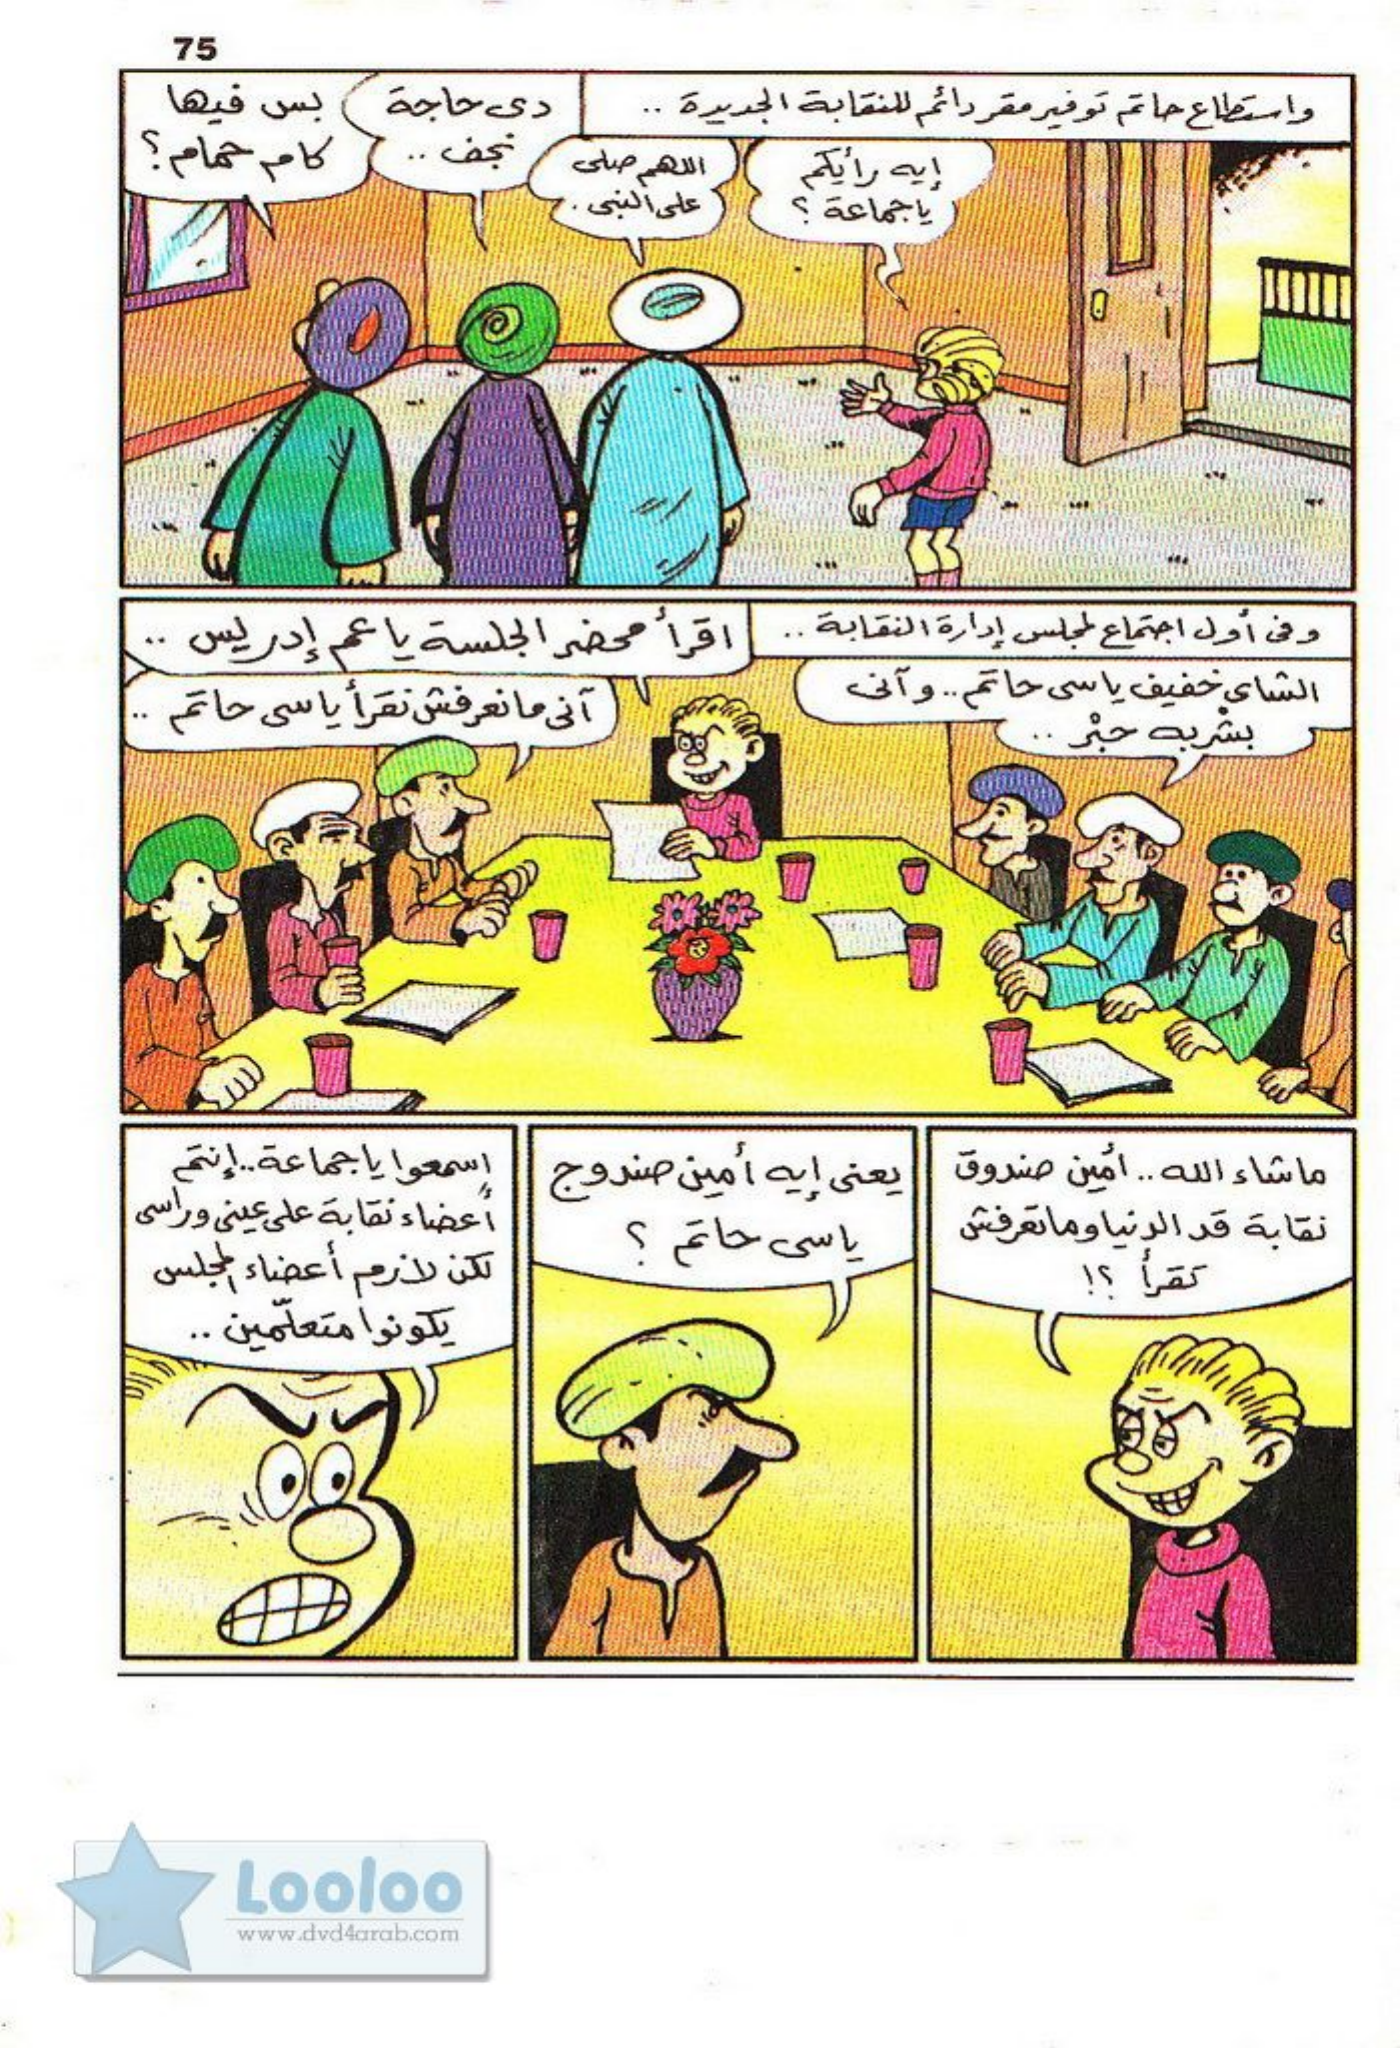 75
واستطاع حاتم توفير مقر دائم للنقابة الجديدة ..
إيه رأيكم
ياجماعة ؟
اللهم صلى
على النبى .
دى حاجة
نجف ..
بس فيها
كام حمام ؟
وفى أول اجتماع لمجلس إدارة النقابة ..
اقرأ محضر الجلسة يا عم إدريس ..
الشاى خفيف ياسى حاتم .. وآنى
بشْربه حبْر ..
آنى مانعرفش نقرأ ياسى حاتم ..
ماشاء الله .. أمين صندوق
نقابة قد الدنيا وماتعرفش
تقرأ ؟!
يعنى إيه أمين صندوج
ياسى حاتم ؟
اسمعوا ياجماعة .. إنتم
أعضاء نقابة على عينى وراسى
لكن لازم أعضاء المجلس
يكونوا متعلّمين ..
Looloo
www.dvd4arab.com